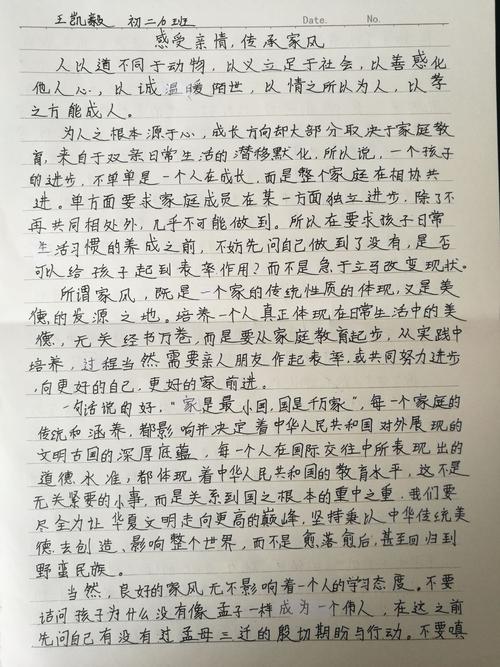 王凯毅 初二6班 Date. No.
感受亲情,传承家风
人以道不同于动物,以义立足于社会,以善感化
他人心,以诚温暖陌世,以情之所以为人,以孝
之方能成人。
为人之根本源于心,成长方向却大部分取决于家庭教
育,来自于双亲日常生活的潜移默化,所以说,一个孩子
的进步,不单单是一个人在成长,而是整个家庭在相协共
进。单方面要求家庭成员在某一方面独立进步,除了不
再共同相处外,几乎不可能做到。所以在要求孩子日常
生活习惯的养成之前,不妨先问自己做到了没有,是否
可以给孩子起到表率作用?而不是急于立马改变现状。
所谓家风,既是一个家的传统性质的体现,又是美
德的发源之地。培养一个人真正体现在日常生活中的美
德,无关经书万卷,而是要从家庭教育起步,从实践中
培养,过程当然需要亲人朋友作起表率,或共同努力进步
,向更好的自己,更好的家前进。
一句话说的好,“家是最小国,国是千万家”,每一个家庭的
传统和涵养,都影响并决定着中华人民共和国对外展现的
文明古国的深厚底蕴,每个人在国际交往中所表现出的
道德水准,都体现着中华人民共和国的教育水平,这不是
无关紧要的小事,而是关系到国之根本的重中之重。我们要
尽全力让华夏文明走向更高的巅峰,坚持秉以中华传统美
德去创造、影响整个世界,而不是愈落愈后,甚至回归到
野蛮民族。
当然,良好的家风无不影响着一个人的学习态度。不要
诘问孩子为什么没有像孟子一样成为一个伟人,在这之前
先问自己有没有过孟母三迁的殷切期盼与行动。不要嗔